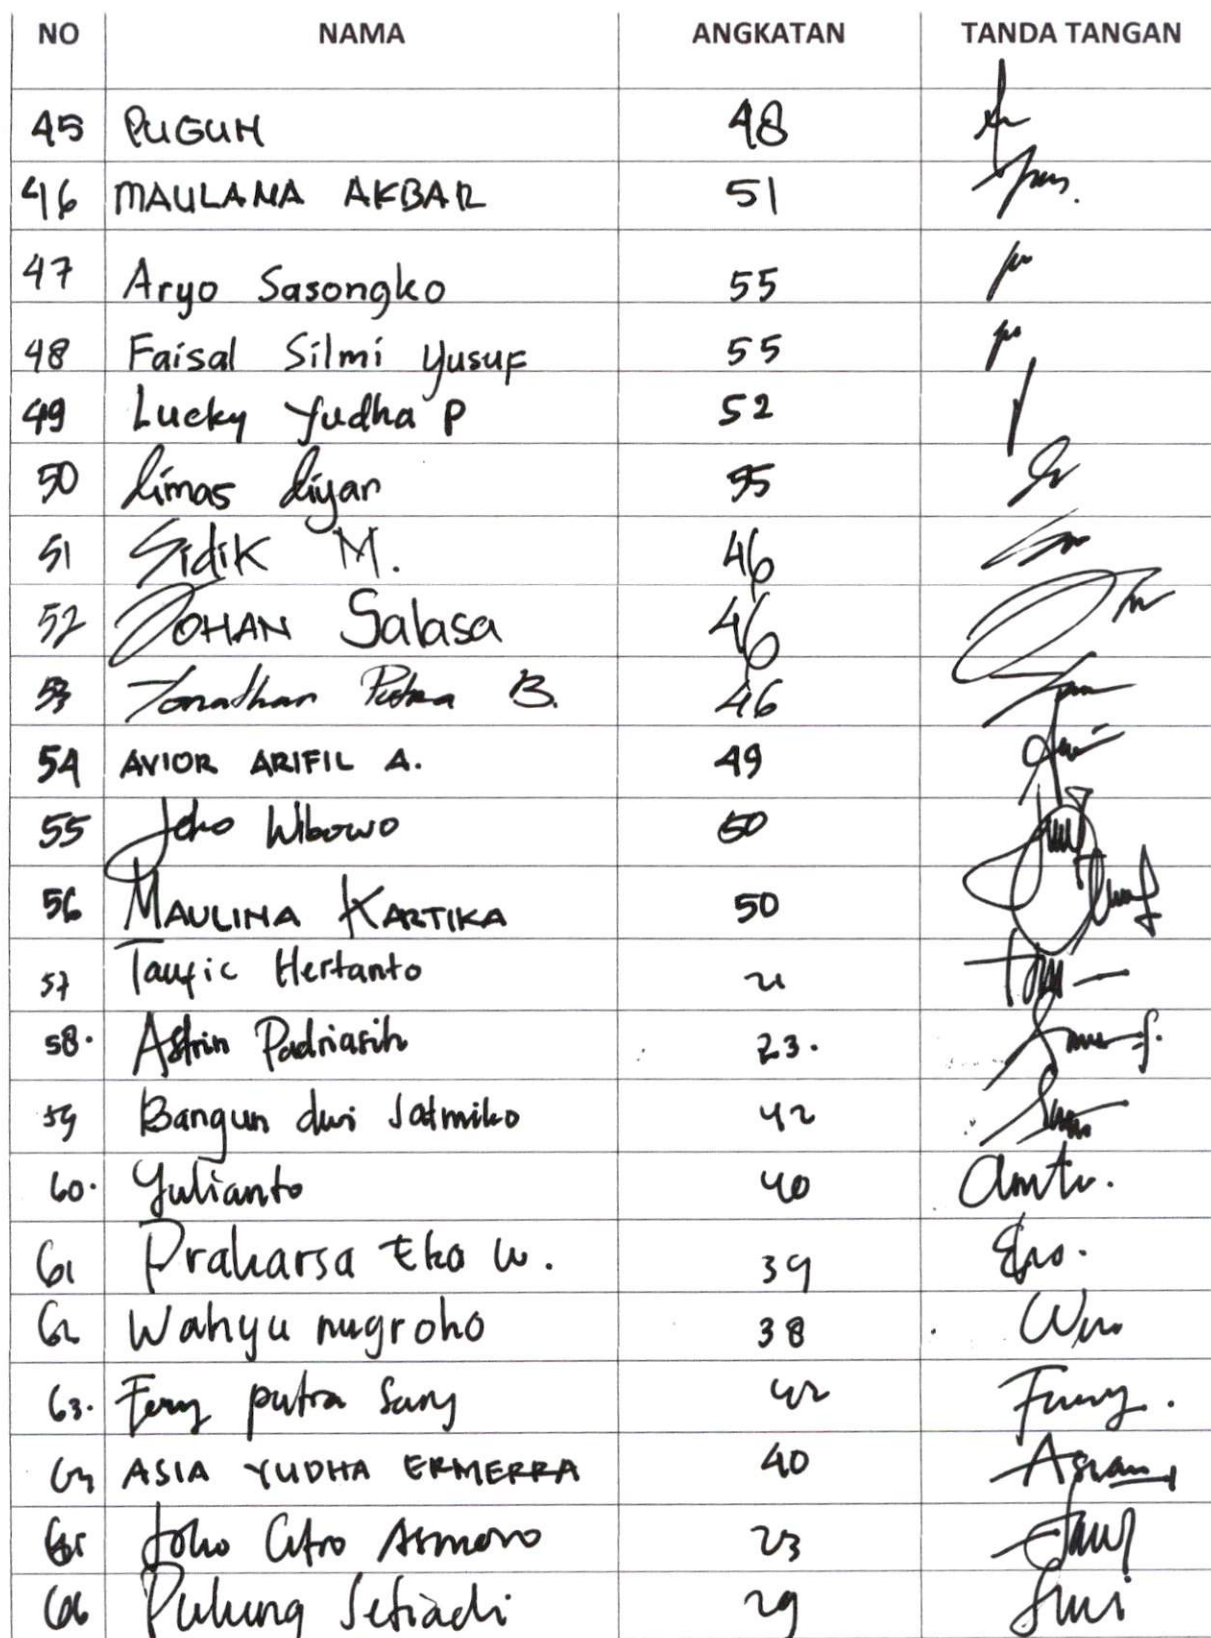 NO NAMA ANGKATAN TANDA TANGAN
45 PUGUH 48
46 MAULANA AKBAR 51
47 Aryo Sasongko 55
48 Faisal Silmi Yusuf 55
49 Lucky Yudha P 52
50 Dimas Diyan 55
51 Sidik M. 46
52 JOHAN Salasa 46
53 Jonathan Putra B. 46
54 AVIOR ARIFIL A. 49
55 Joko Wibowo 50
56 MAULINA KARTIKA 50
57 Taufic Hertanto 21
58. Astrin Padriasih 23.
59 Bangun dwi Jatmiko 42
60. Yulianto 40
61 Praharsa Eko W. 39 Eko.
62 Wahyu nugroho 38
63. Ferry putra 42
64 ASIA YUDHA ERMERRA 40
65 Joko Citro Asmoro 23
66 Pulung Setiadi 29